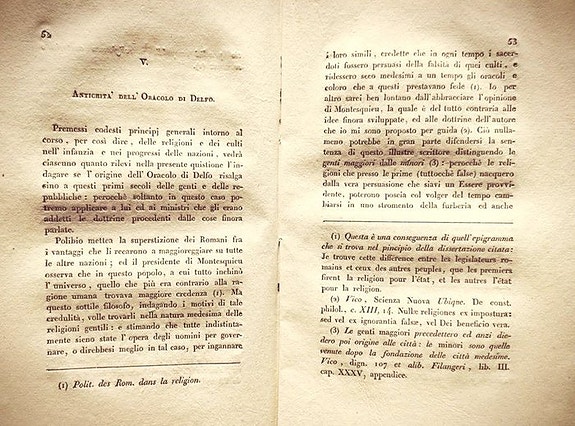 52
V.
ANTICHITA' DELL'ORACOLO DI DELFO.
Premessi codesti principj generali intorno al
corso, per così dire, delle religioni e dei culti
nell'infanzia e nei progressi delle nazioni, vedrà
ciascuno quanto rilevi nella presente quistione l'in-
dagare se l'origine dell'Oracolo di Delfo risalga
sino a questi primi secoli delle genti e delle re-
pubbliche: perocchè soltanto in questo caso po-
tremo applicare a lui ed ai ministri che gli erano
addetti le dottrine procedenti dalle cose finora
parlate.
Polibio mettea la superstizione dei Romani fra
i vantaggi che li recarono a maggioreggiare su tutte
le altre nazioni; ed il presidente di Montesquieu
osserva che in questo popolo, a cui tutto inchinò
l'universo, quello che più era contrario alla ra-
gione umana trovava maggiore credenza (1). Ma
questo sottile filosofo, indagando i motivi di tale
credulità, volle trovarli nella natura medesima delle
religioni gentili: e stimando che tutte indistinta-
mente sieno state l'opera degli uomini per gover-
nare, o direbbesi meglio in tal caso, per ingannare
(1) Polit. des Rom. dans la religion.
53
i loro simili, credette che in ogni tempo i sacer-
doti fossero persuasi della falsità di quei culti, e
ridessero seco medesimi a un tempo gli oracoli e
coloro che a questi prestavano fede (1). Io per
altro sarei ben lontano dall'abbracciare l'opinione
di Montesquieu, la quale è del tutto contraria alle
idee finora sviluppate, ed alle dottrine dell'autore
che io mi sono proposto per guida (2). Ciò nulla-
meno potrebbe in gran parte difendersi la sen-
tenza di questo illustre scrittore distinguendo le
genti maggiori dalle minori (3): perocchè le reli-
gioni che presso le prime (tuttocchè false) nacquero
dalla vera persuasione che siavi un Essere provvi-
dente, poterono poscia ed volger del tempo cambiarsi
in uno stromento della furberia ed anche
(1) Questa è una conseguenza di quell'epigramma
che si trova nel pincipio della dissertazione citata:
Je trouve cette différence entre les législateurs ro-
mains et ceux des autres peuples, que les premiers
firent la religion pour l'état, et les autres l'état
pour la religion.
(2) Vico, Scienza Nuova Ubique. De const.
philol., c. XIII, 14. Nullæ religiones ex impostura:
sed vel ex ignorantia falsæ, vel Dei beneficio vera.
(3) Le genti maggiori precedettero ed anzi die-
dero poi origine alle città: le minori sono quelle
venute dopo la fondazione delle città medesime.
Vico, dign. 107 et alib. Filangeri, lib. III.
cap. XXXV, appendice.